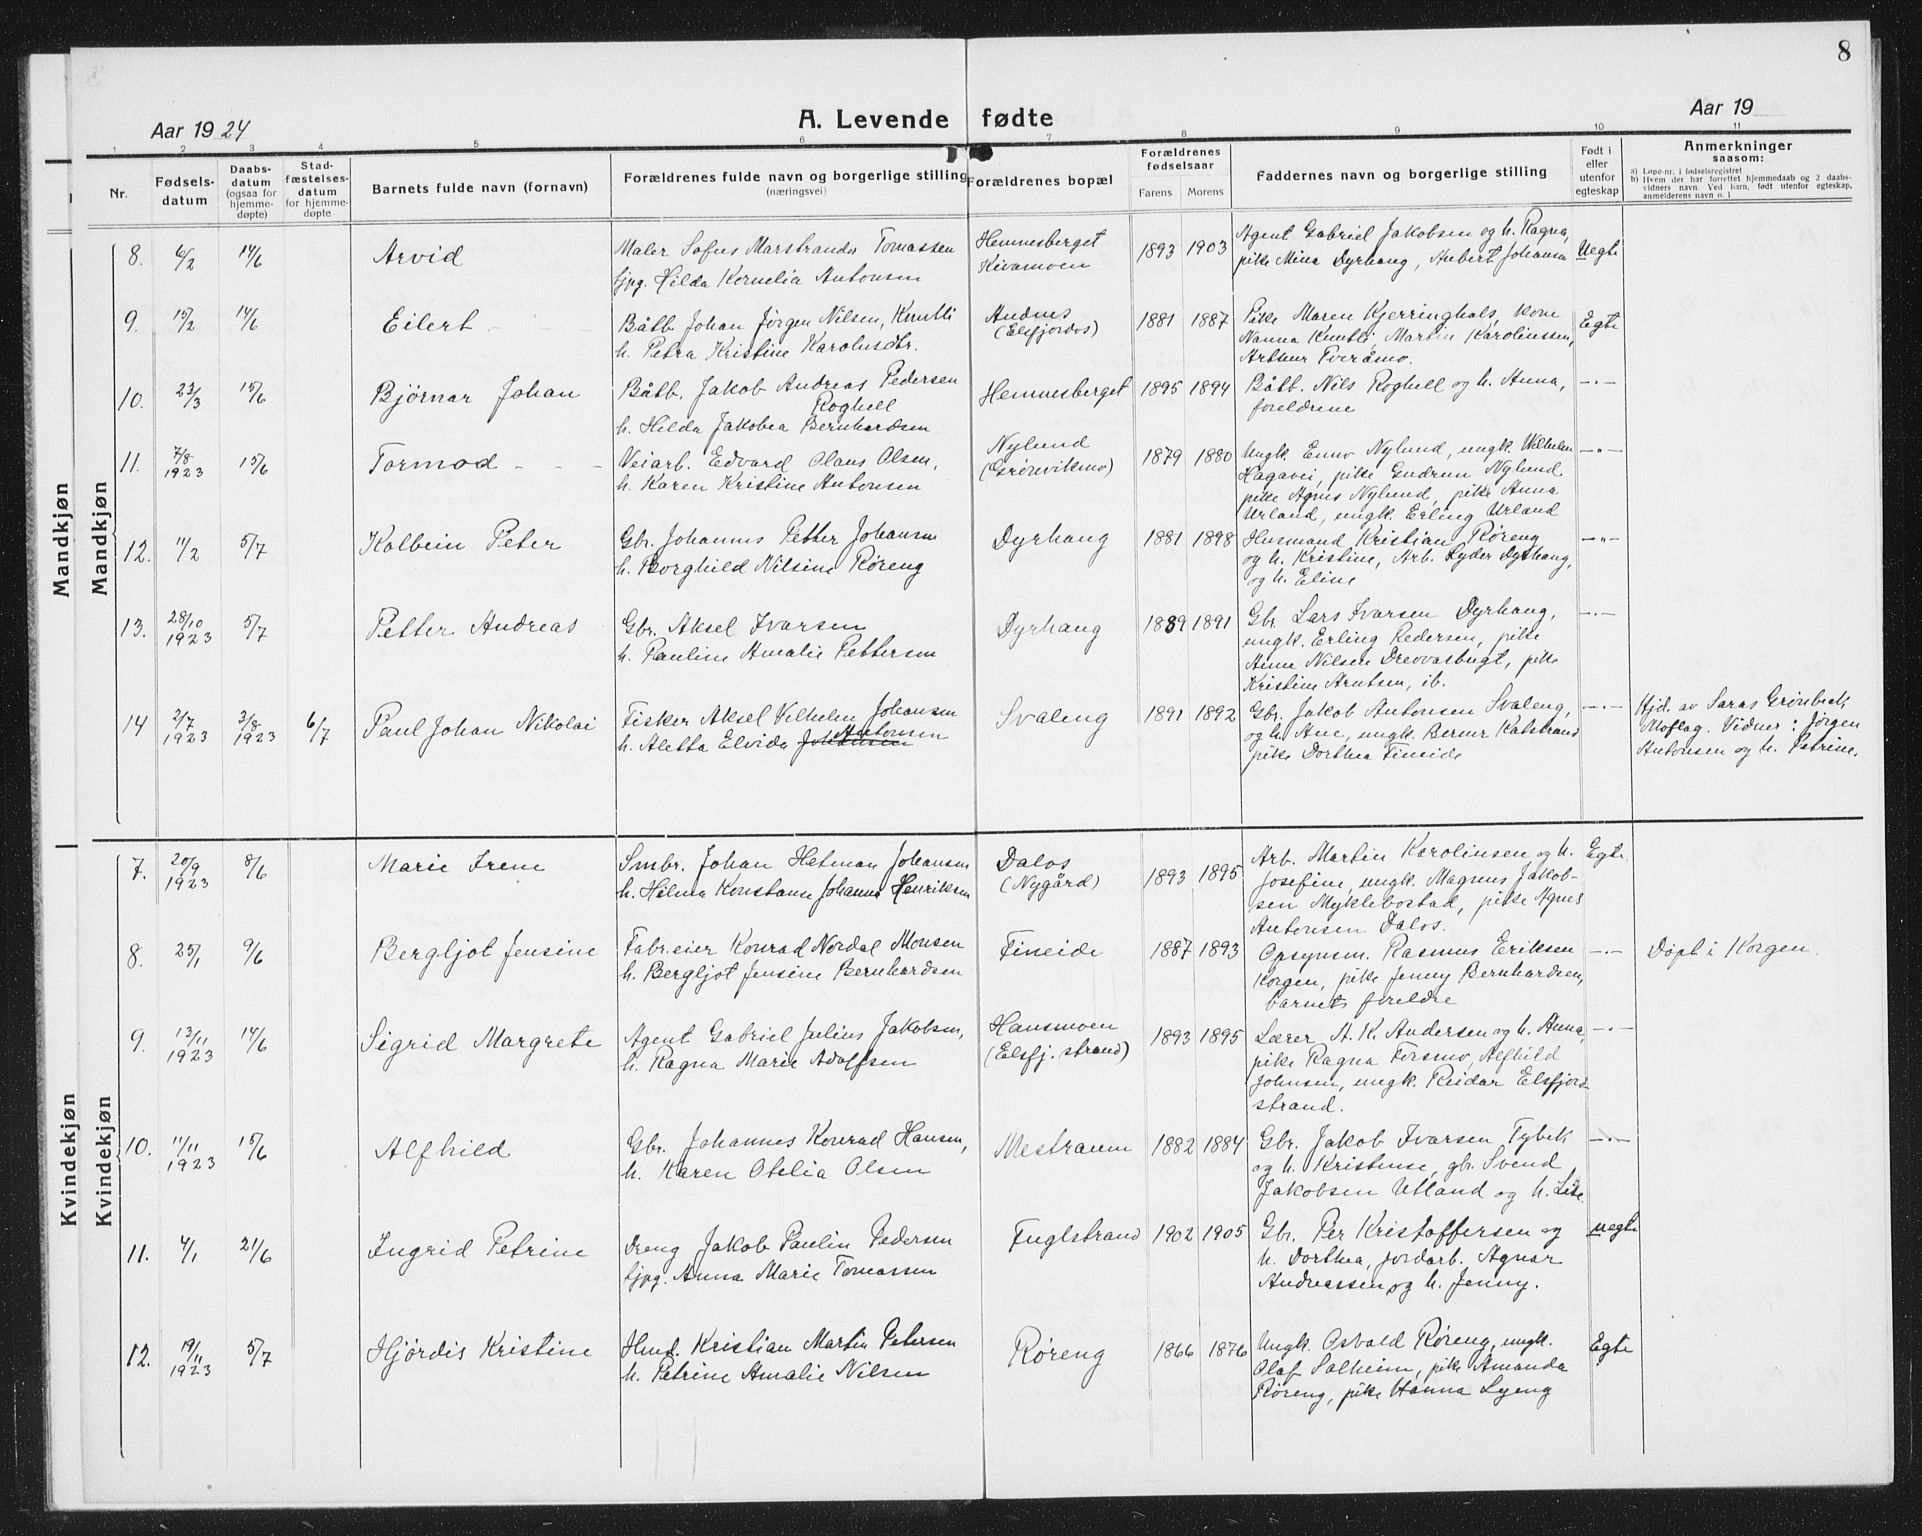 8
Aar 1924
A. Levende fødte
Aar 19
1 2 3 4 5 6 7 8 9 10 11
Nr.
Fødsels-
datum
Daabs-
datum
(ogsaa for
hjemme-
døpte)
Stad-
fæstelses-
datum
for hjemme-
døpte
Barnets fulde navn (fornavn)
Forældrenes fulde navn og borgerlige stilling
(næringsvei)
Forældrenes bopæl
Forældrenes
fødselsaar
Farens Morens
Faddernes navn og borgerlige stilling
Født i
eller
utenfor
egteskap
Anmerkninger
saasom:
a) Løpe-nr. i fødselsregistret
b) Hvem der har forrettet hjemmedaab og 2 daabs-
vidners navn. Ved barn, født utenfor egteskap,
anmelderens navn o. l
Mandkjøn
Mandkjøn
8. 6/2 14/6 Arvid
Maler Sofus Marstrando Tomassen
tjpg. Hilda Kornelia Antonsen
Hemnesberget
Kivamoen
1893 1903
Agent Gabriel Jakobsen og h. Ragna,
pike Mina Dyrhaug, Anbert Johansen
Uegte
9. 15/2 14/6 Eilert
Båtb. Johan Jørgen Nilsen, Kuntli
h. Petra Kristine Karolusdtr.
Andnes
(Elsfjordos)
1881 1887
Pike Maren Kjerringhals, kone
Nanna Kuntli, Martin Karolinssen,
Arthur Tveråmo.
Egte
10. 23/3 15/6 Bjørnar Johan
Båtb. Jakob Andreas Pedersen
Roghell
h. Hilda Jakobea Bernhardsen
Hemnesberget
1895 1894
Båtb. Nils Roghell og h. Anna,
foreldrene
-"-
11. 7/8
1923
15/6 Tormod
Veiarb. Edvard Olaus Olsen,
h. Karen Kristine Antonsen
Nylund
(Grönvikmo)
1879 1880
Ungk. Enno Nylund, ungk. Wilhelm
Hagavei, pike Gudrun Nylund
pike Agnes Nylund, pike Anna
Urland, ungk. Erling Urland
-"-
12. 11/2 5/7 Kolbein Peter
Gbr. Johannes Petter Johansen
h. Borghild Nilsine Røreng
Dyrhaug
1881 1898
Husmand Kristian Røreng
og h. Kristine, Arb. Lyder Dyrhaug,
og h. Eline
-"-
13. 28/10
1923
5/7 Petter Andreas
Gbr. Aksel Ivarsen
h. Pauline Amalie Pettersen
Dyrhaug
1889 1891
Gbr. Lars Ivarsen Dyrhaug,
ungk. Erling Pedersen, pike
Anna Nilsen Drevvasbugt, pike
Kristine Arntsen, ib.
-"-
14 2/7
1923
3/8
1923
6/7 Paul Johan Nikolai
Fisker Aksel Vilhelm Johansen
Antonsen
h. Aletta Elvida Johansen
Svaleng
1891 1892
Gbr. Jakob Antonsen Svaleng,
og h. Ane, ungk. Berner Kalstrand
pike Dorthea Fineide
-"-
Hjd. av Saras Grönbech,
Moflag. Vidner: Jørgen
Antonsen og h. Petrine.
Kvindekjøn
Kvindekjøn
7. 20/9
1923
8/6 Marie Irene
Smbr. Johan Hetman Johansen
h. Hilma Konstanse Johanne Henriksen
Dalos
(Nygård)
1893 1895
Arb. Martin Karolinsen og h.
Josefine, ungk. Magnus Jakob-
sen Myklebostad, pike Agnes
Antonsen Dalos.
Egte
8. 25/1 9/6 Bergljot Jensine
Fabr.eier Konrad Nordal Monsen
h. Bergljot Jensine Bernhardsen
Fineide
1887 1893
Opsynsm. Rasmus Eriksen
Korgen, pike Jenny Bernhardsen,
barnets foreldre
-"-
Døpt i Korgen.
9. 13/11
1923
14/6 Sigrid Margrete
Agent Gabriel Julius Jakobsen,
h. Ragna Marie Adolfsen
Hansmoen
(Elsfj. strand)
1893 1895
Lærer A. K. Andersen og h. Anna,
pike Ragna Forsmo, Alfhild
Johnsen, ungk. Reidar Elsfjord-
strand.
-"-
10. 11/11
1923
15/6 Alfhild
Gbr. Johannes Konrad Hansen,
h. Karen Otelia Olsen
Mestraum
1882 1884
Gbr. Jakob Ivarsen Tybek
og h. Kristense, gbr. Svend
Jakobsen Utland og h. Lise
-"-
11. 4/1 21/6 Ingrid Petrine
Dreng Jakob Paulin Pedersen
tjpg. Anna Marie Tomassen
Fuglstrand
1902 1905
Gbr. Per Kristoffersen og
h. Dorthea, jordarb. Agnar
Andreassen og h. Jenny.
uegte
12. 19/11
1923
5/7 Hjördis Kristine
Hmd. Kristian Martin Petersen
h. Petrine Amalie Nilsen
Røreng
1866 1876
Ungk. Osvald Røreng, ungk.
Olaf Solheim, pike Amanda
Røreng, pike Hanna Lyeng
Egte